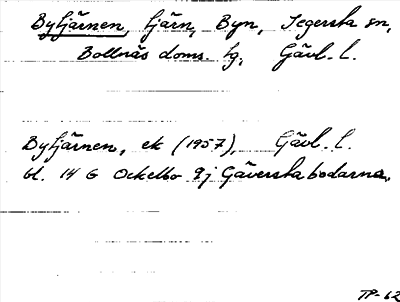 Bytjärnen, tjärn, Byn, Segersta sn,
Bollnäs doms. hg, Gävl. l.
Bytjärnen, ek (1957), Gävl. l.
bl. 14 G Ockelbo 9j Gäverstabodarna.
TP-62